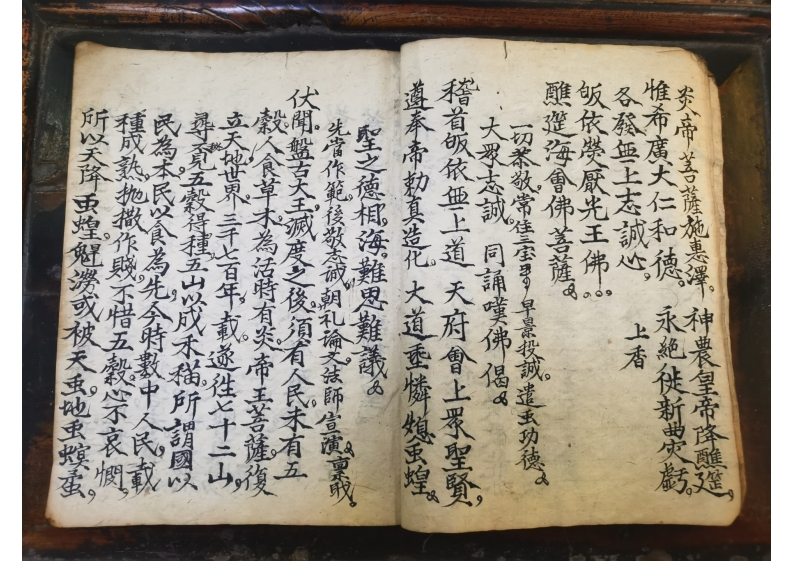 炎帝菩薩施惠澤。神農皇帝降醮筵。
惟希廣大仁和德。永絕徙新曲突虧。
各發無上志誠心。上香
皈依熒厭光王佛。
醮筵海會佛菩薩。
一切恭敬。常住三宝。早景投誠。遣虫功德。
大眾志誠。同誦嘆佛偈。
稽首皈依無上道 天府會上眾聖賢。
遵奉帝勅真造化。大道垂憐媳虫蝗。
聖之德相海。難思難議。
先當作範。後敬志誠。朝礼論文法師 宣演稟戝。
伏聞。盤古大王滅度之後。須有人民。未有五
穀。人食草木為活。時有炎帝王菩薩。復
立天地世界。三千七百年。載遂往七十二山。
尋覓五穀得種。五山以成禾稲。所謂國以
民為本。民以食為先。今時數中人民。載
種成熟。抛撒作賤。不惜五穀。心不哀憫。
所以天降虫蝗。魁澇或被天虫地虫螟蛋。